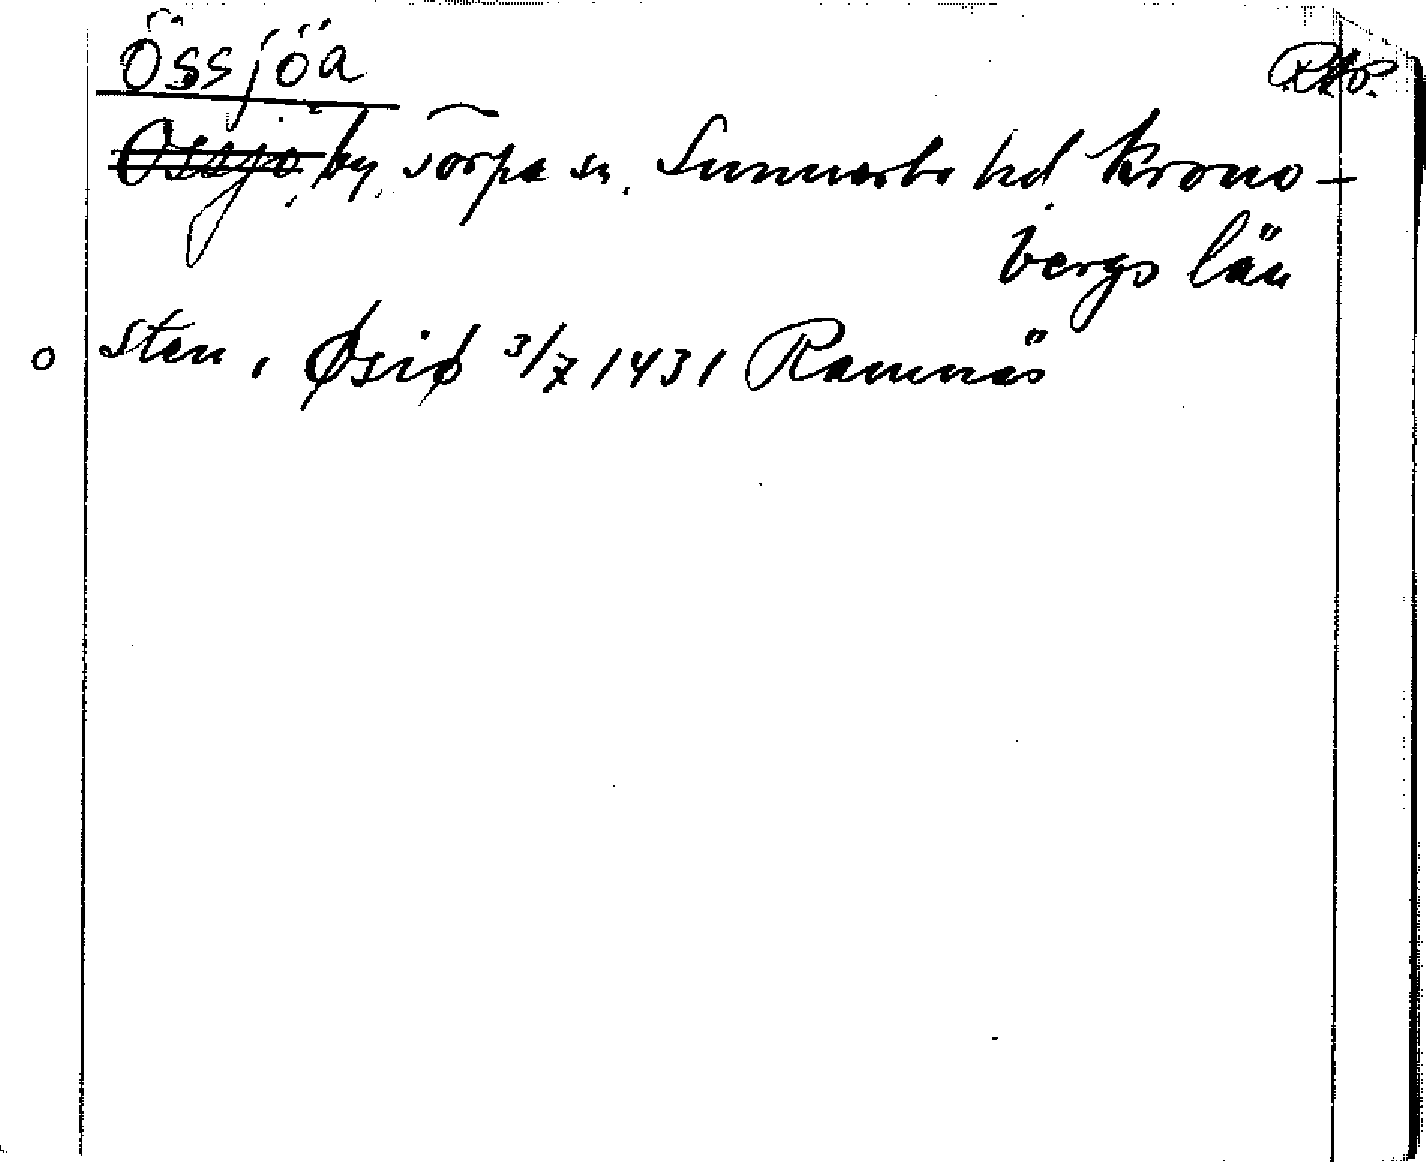 Össjöa
Össjö by, Torpa sn. Sunnerbo hd Krono-
bergs län
o Sten i Øsiø 3/7 1431 Ramnäs